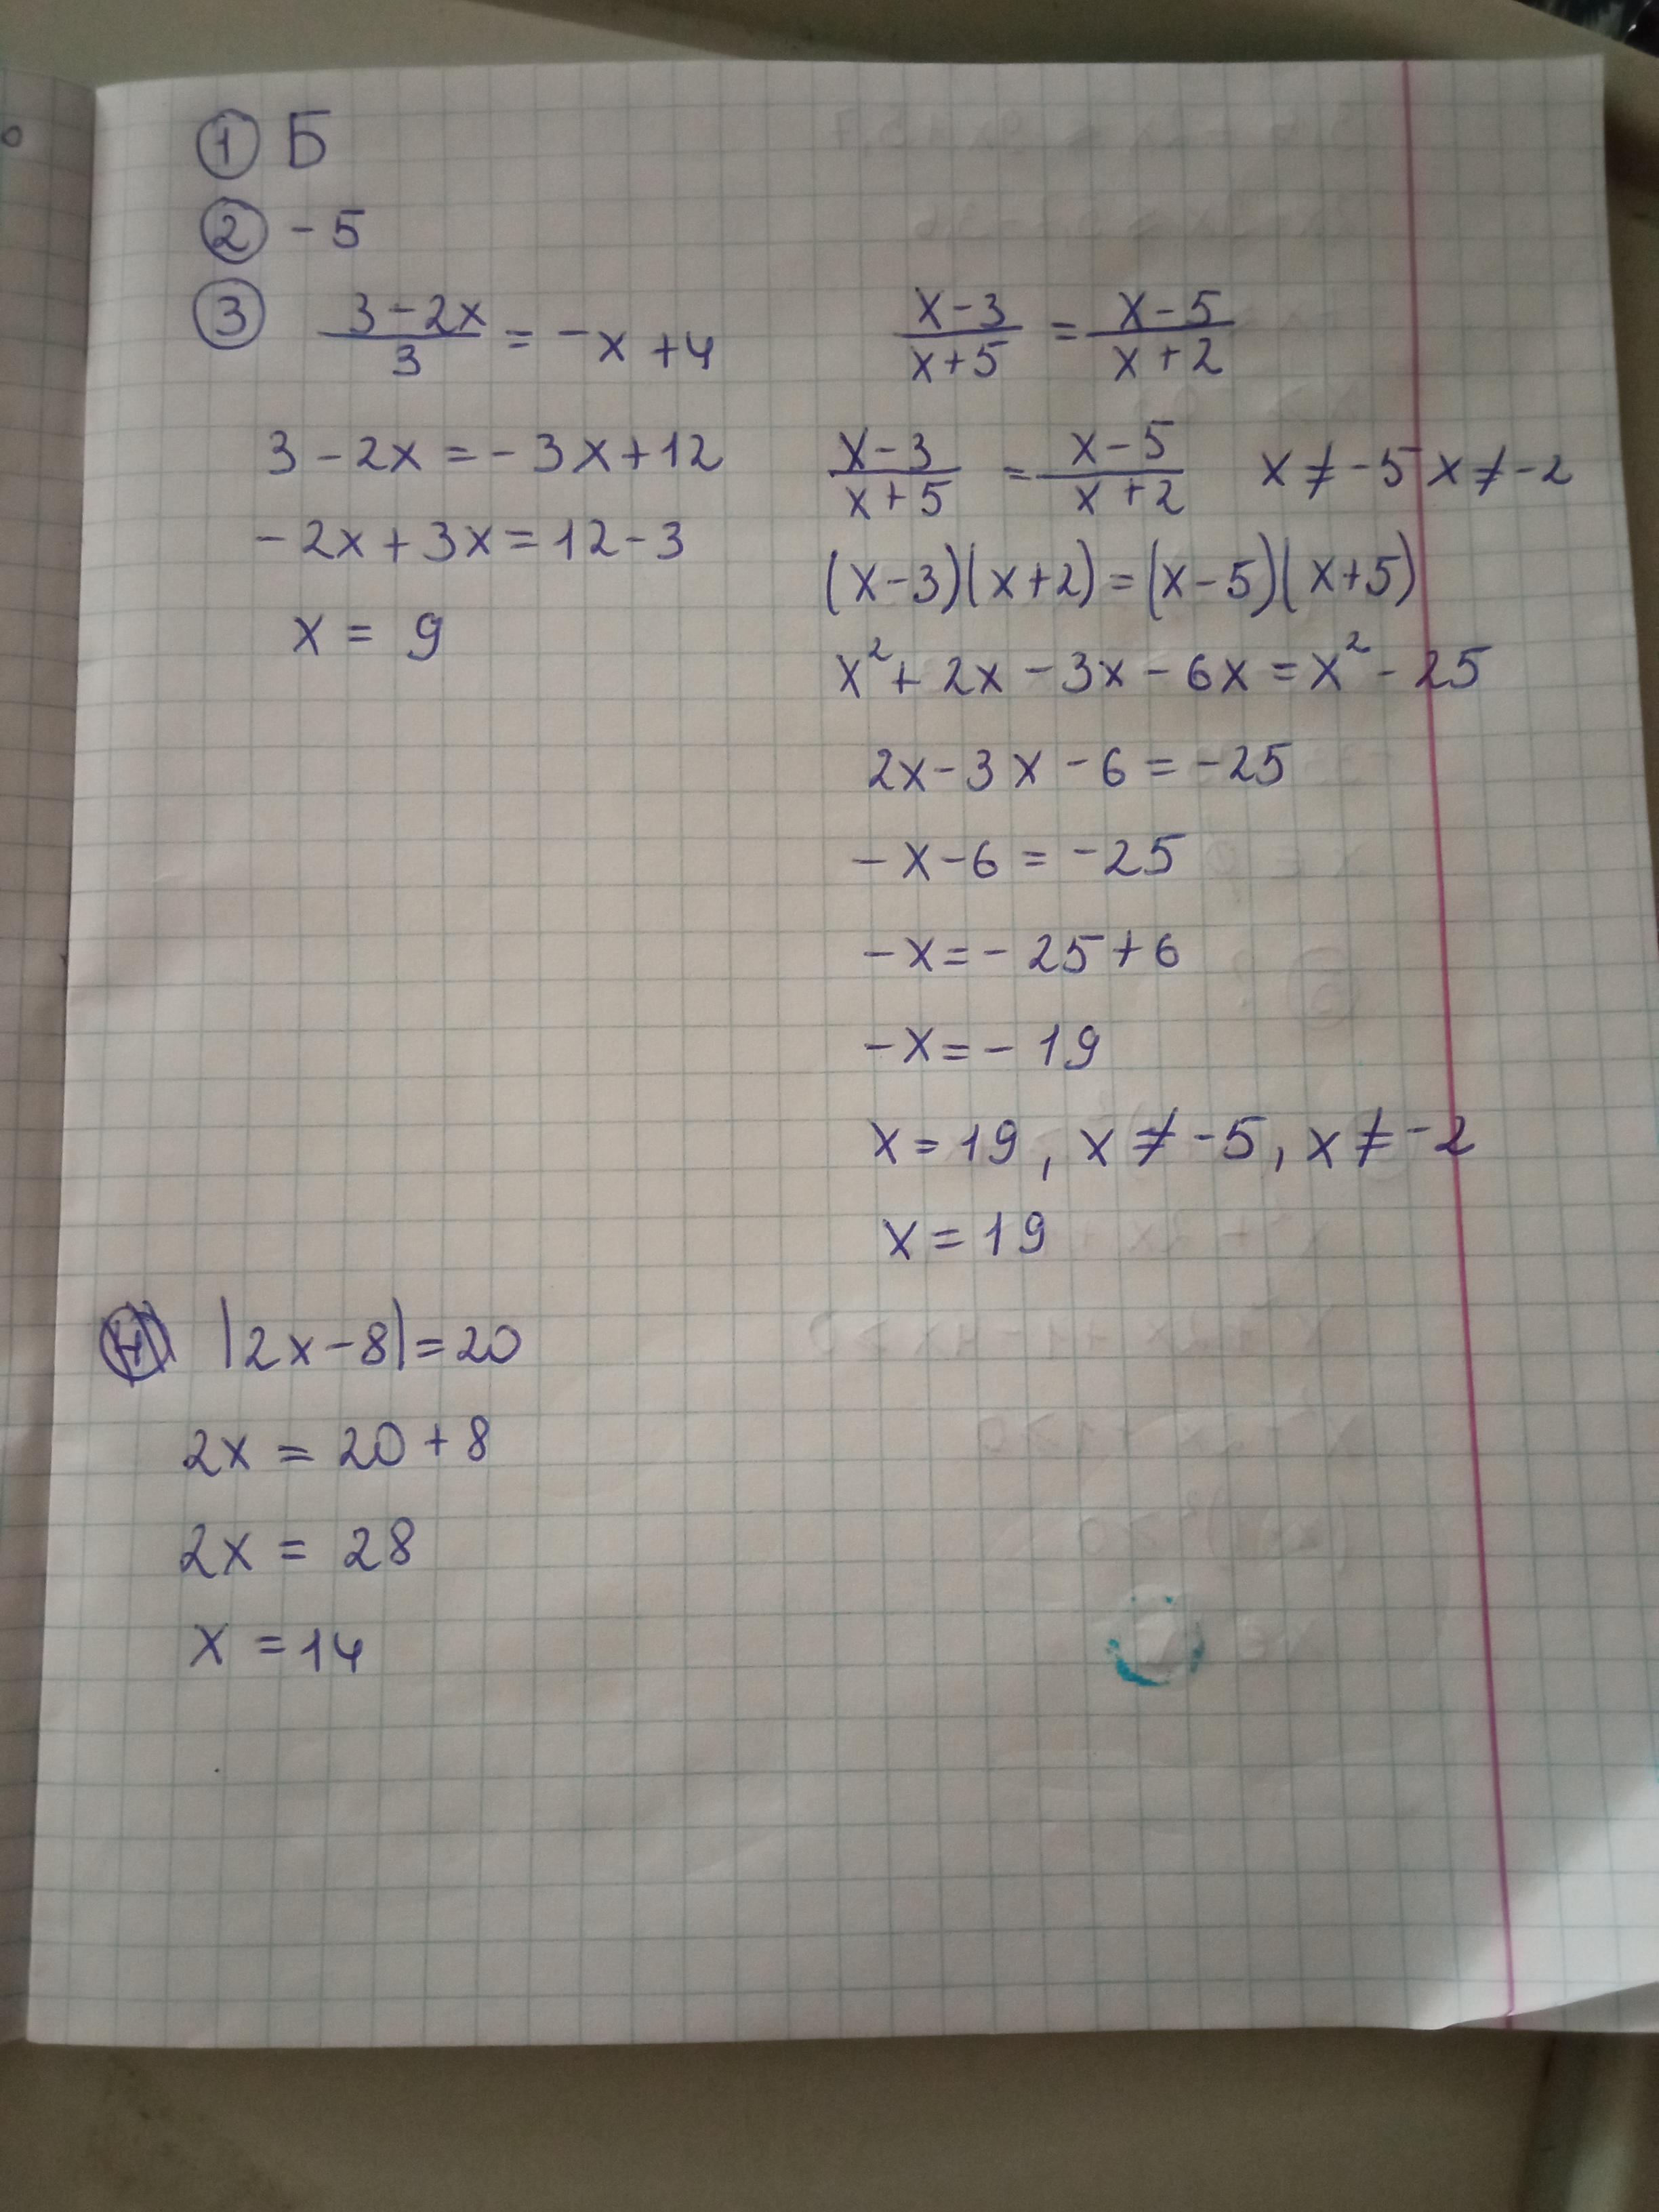 ① Б
② -5
③ (3-2x)/3 = -x+4
3-2x=-3x+12
-2x+3x=12-3
x = 9
(x-3)/(x+5) = (x-5)/(x+2)
(x-3)/(x+5) = (x-5)/(x+2) x≠-5 x≠-2
(x-3)(x+2)=(x-5)(x+5)
x²+2x-3x-6x=x²-25
2x-3x-6=-25
-x-6=-25
-x=-25+6
-x=-19
x=19, x≠-5, x≠-2
x=19
④ |2x-8|=20
2x = 20+8
2x = 28
x =14